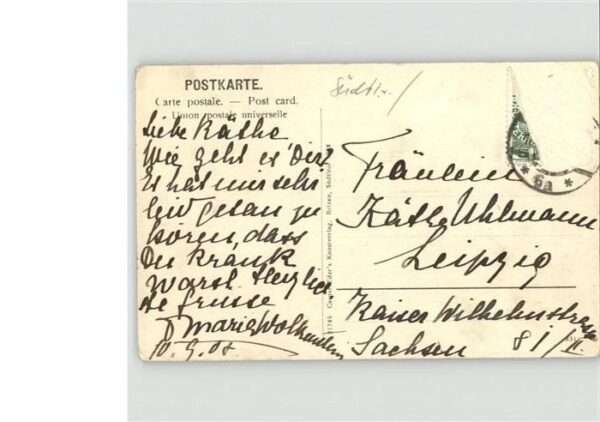 POSTKARTE.
Carte postale. — Post card.
Union postale universelle
Südstr.
Liebe Käthe
Wie geht es Dir?
Es hat mir sehr
leid getan zu
hören, dass
Du krank
warst Herzlich
te Grüsse
Maria Wolkenstein
10.9.08
Fräulein
Käthe Uhlmann
Leipzig
Kaiser Wilhelmstrasse
81/II.
Sachsen
* 6a *